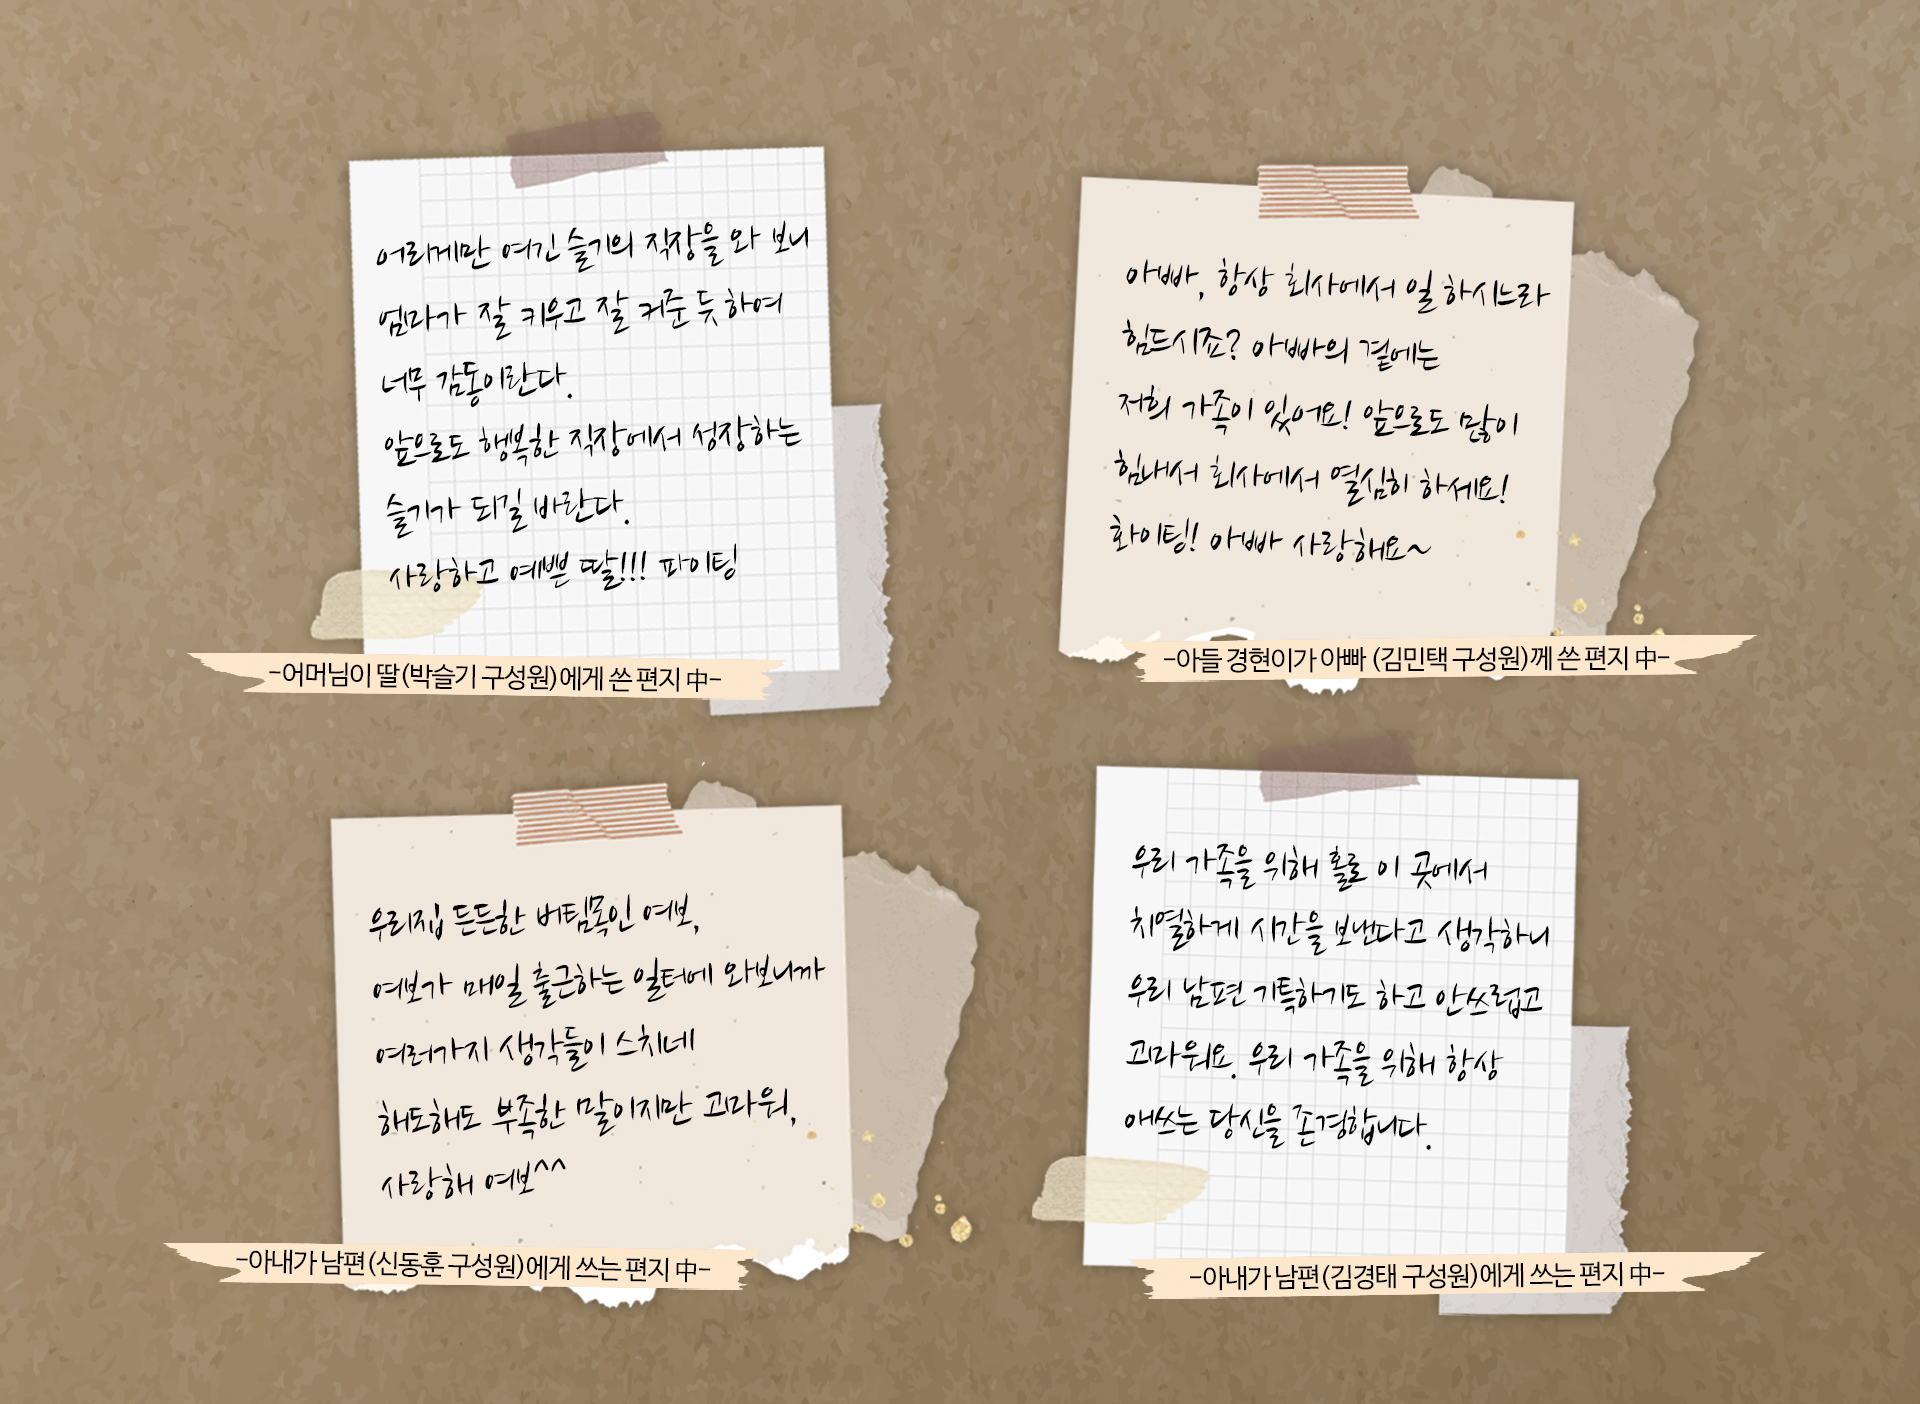 어리게만 여긴 슬기의 직장을 와 보니
엄마가 잘 키우고 잘 커준 듯 하여
너무 감동이란다.
앞으로도 행복한 직장에서 성장하는
슬기가 되길 바란다.
사랑하고 예쁜 딸!!! 파이팅
-어머님이 딸(박슬기 구성원)에게 쓴 편지 中-
아빠, 항상 회사에서 일 하시느라
힘드시죠? 아빠의 곁에는
저희 가족이 있어요! 앞으로도 많이
힘내서 회사에서 열심히 하세요!
화이팅! 아빠 사랑해요~
-아들 경현이가 아빠 (김민택 구성원)께 쓴 편지 中-
우리집 든든한 버팀목인 여보,
여보가 매일 출근하는 일터에 와보니까
여러가지 생각들이 스치네
해도해도 부족한 말이지만 고마워,
사랑해 여보^^
-아내가 남편(신동훈 구성원)에게 쓰는 편지 中-
우리 가족을 위해 홀로 이 곳에서
치열하게 시간을 보낸다고 생각하니
우리 남편 기특하기도 하고 안쓰럽고
고마워요. 우리 가족을 위해 항상
애쓰는 당신을 존경합니다.
-아내가 남편(김경태 구성원)에게 쓰는 편지 中-